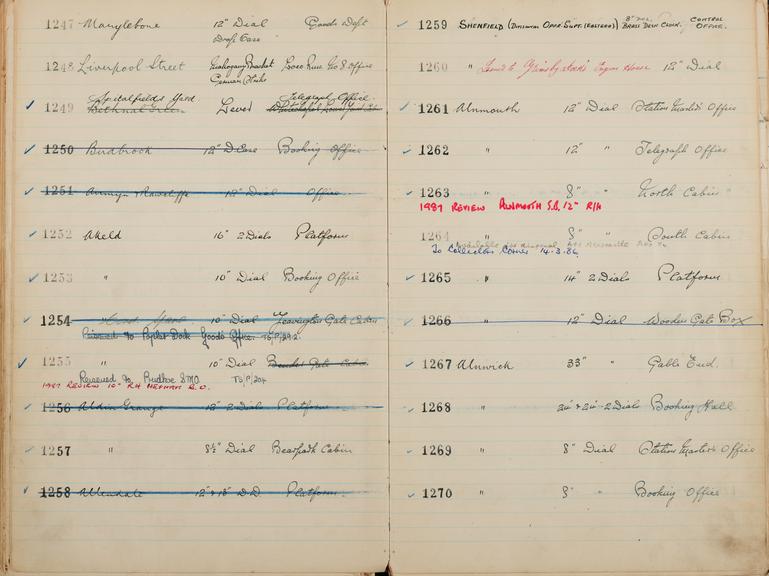 1247 Marylebone 12" Dial Goods Dept
Drop Case
1248 Liverpool Street Mahogany Bracket Loco Run. Gs Office
German Clock
Spitalfields Yard. Telegraph Office.
1249 Bethnal Green Level Whitechapel
1250 Birdbrook 12" D Case Booking Office
1251 12" Dial Office
1252 Akeld 16" 2 Dials Platform
1253 " 10" Dial Booking Office
1254 10" Dial Yeavering Gate Cabin
Removed to Poplar Dock Goods Office TS/P/292.
1255 " 10" Dial Gate Cabin
Removed to Prudhoe S.M.O. TS/P/204
1987 REVIEW 10" R.H HEXHAM B.O.
1256 Aldin Grange 13" 2 Dials Platform
1257 " 8½" Dial Bearpark Cabin
1258 Allendale 12" & 15" D.D Platform
1259 SHENFIELD (DIVISIONAL OPER. SUPT. (EASTERN)) 8" DIAL BRASS DESK CLOCK. CONTROL
OFFICE.
1260 " Engine House 12" Dial
1261 Alnmouth 12" Dial Station Master's Office
1262 " 12" " Telegraph Office
1263 " 8" " North Cabin
1987 REVIEW ALNMOUTH S.B. 12" R/H
1264 " 8" " South Cabin
Available for disposal
To Collectors Corner 14.3.86
1265 " 14" 2 Dials Platform
1266 " 12" Dial Wooden Gate Box
1267 Alnwick 33" " Gable End.
1268 " 24" & 24" 2 Dials Booking Hall
1269 " 8" Dial Station Master's Office
1270 " 8" " Booking Office